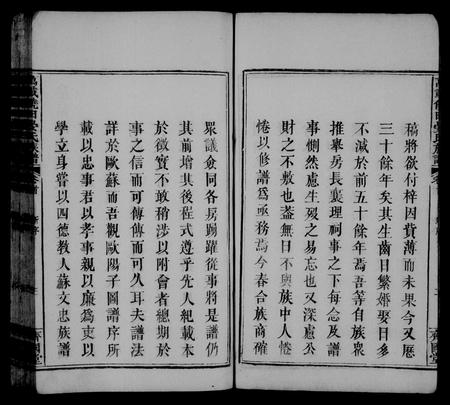 稿將欲付梓因費薄而未果今又歷
三十餘年矣其生齒日繁婚娶日多
不減於前五十餘年焉吾等自族衆
推舉房長襄理祠事之下每念及譜
事惻然慮生歿之易忘也又深慮公
財之不敷也葢無日不與族中人惓
惓以修譜爲亟務焉今春合族商確
衆議僉同各房踴躍從事將是譜仍
其前增其後程式遵乎先人紀載本
於徵實不敢稍涉以附會者總期於
事之信而可傳傳而可久耳夫譜法
詳於歐蘇而吾觀歐陽子圖譜序所
載以忠事君以孝事親以廉爲吏以
學立身嘗以四德教人蘇文忠族譜
齊國堂